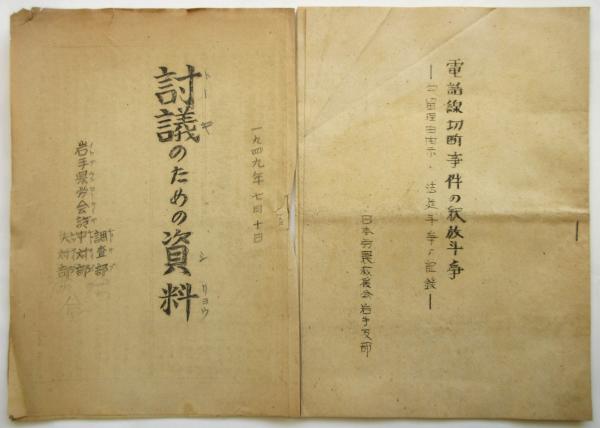 電話線切断事件の釈放斗争
―勾留理由開示・法廷斗争の記録―
日本労農救援会岩手支部
一九四九年七月十日
討議のための資料
トーギ
シリョウ
岩手県労会議
調査部
中対部